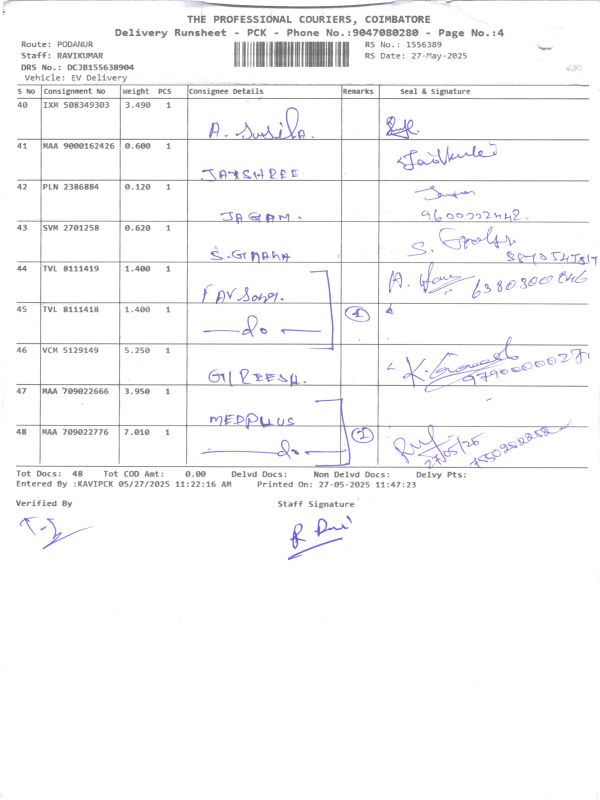 THE PROFESSIONAL COURIERS, COIMBATORE
Delivery Runsheet - PCK - Phone No.:9047080280 - Page No.:4
Route: PODANUR RS No.: 1556389
Staff: RAVIKUMAR RS Date: 27-May-2025
DRS No.: DCJB155638904
Vehicle: EV Delivery
S No Consignment No Weight PCS Consignee Details Remarks Seal & Signature
40 IXM 508349303 3.490 1
A. Susila.
41 MAA 9000162426 0.600 1
JAYSHREE
42 PLN 2386884 0.120 1
JAGAM. 9600222442.
43 SVM 2701258 0.620 1
S.
44 TVL 8111419 1.400 1
6380300846
45 TVL 8111418 1.400 1 1
do
46 VCM 5129149 5.250 1
GIREESH.
47 MAA 709022666 3.950 1
MEDPLUS
48 MAA 709022776 7.010 1 2
do 27/05/25 7550252252
Tot Docs: 48 Tot COD Amt: 0.00 Delvd Docs: Non Delvd Docs: Delvy Pts:
Entered By :KAVIPCK 05/27/2025 11:22:16 AM Printed On: 27-05-2025 11:47:23
Verified By Staff Signature